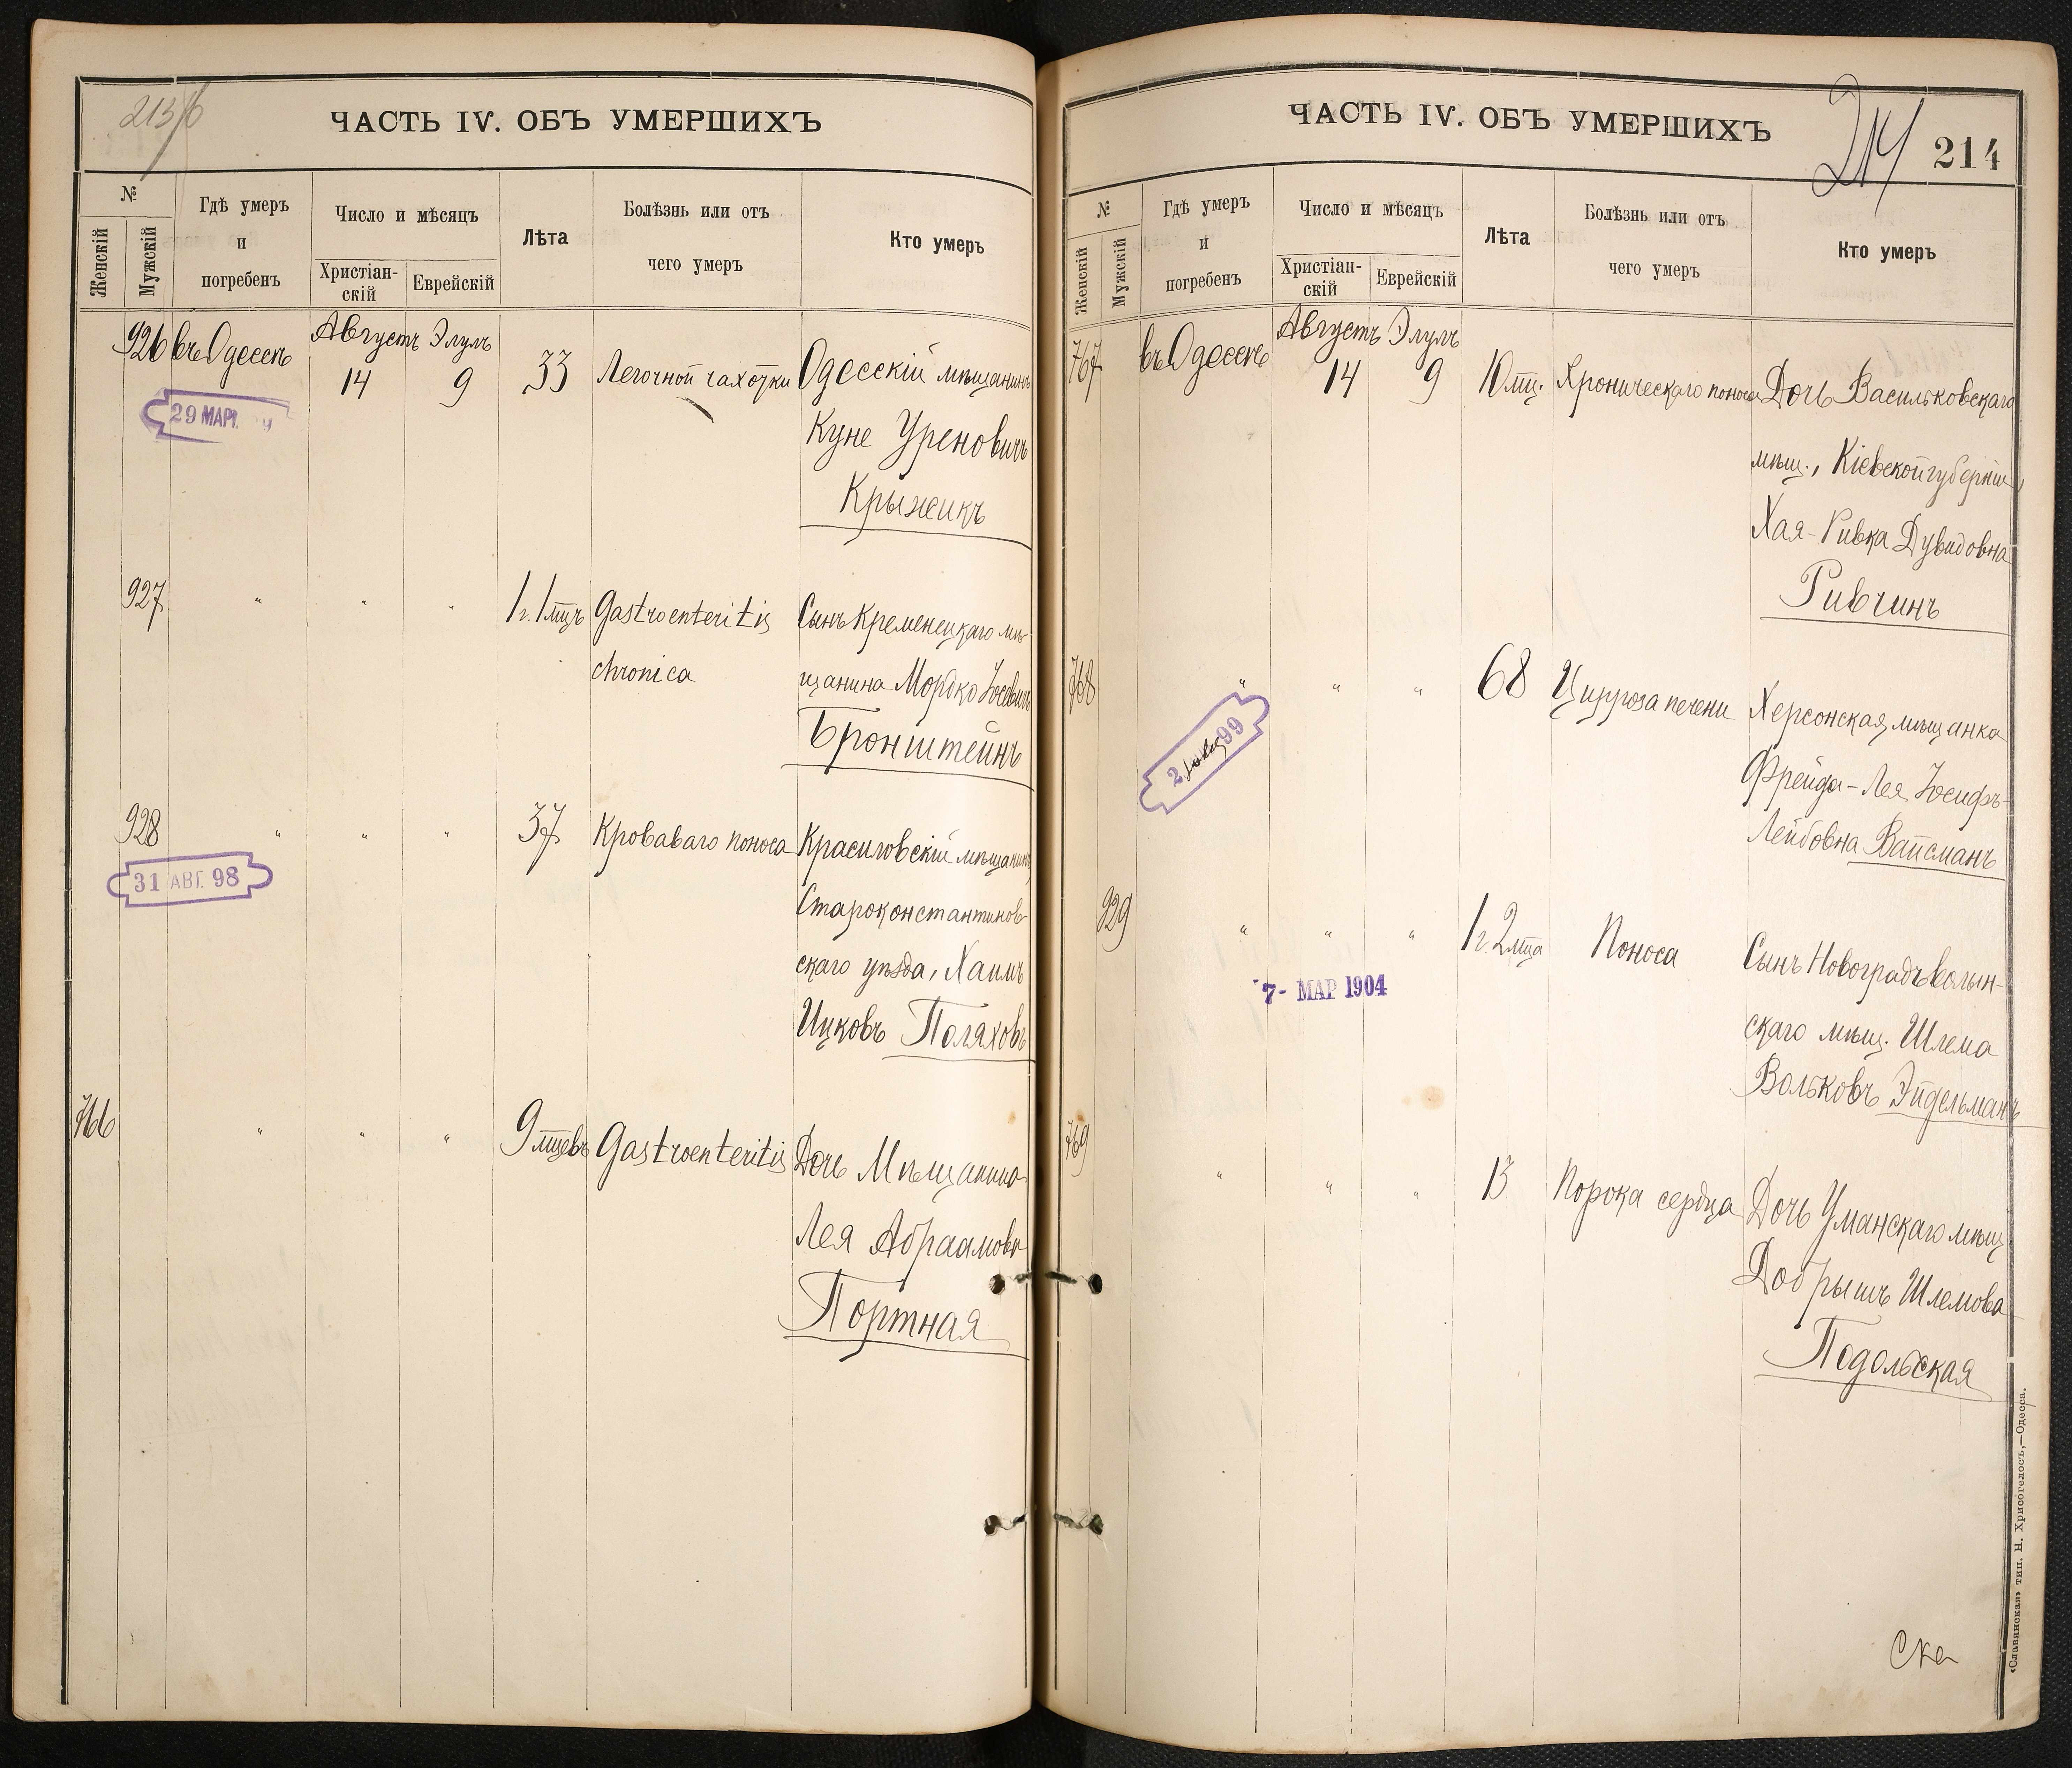 213/б
ЧАСТЬ IV. ОБЪ УМЕРШИХЪ
№
Женскій
Мужскій
Гдѣ умеръ
и
погребенъ
Число и мѣсяцъ
Христіан-
скій
Еврейскій
Лѣта
Болѣзнь или отъ
чего умеръ
Кто умеръ
926 въ Одессѣ Августъ Элулъ
14 9 33 Легочной чахотки Одесскій мѣщанинъ
29 МАР.
Куне Уреновичъ
Крыжикъ
927 " " " 1 г. 1 мцъ Gastroenteritis Сынъ Кременецкаго мѣ-
chronica щанина Мордко Іосевичъ
Бронштейнъ
928 " " " 37 Кроваваго поноса Красиловскій мѣщанинъ,
31 АВГ. 98
Староконстантинов-
скаго уѣзда, Хаимъ
Ицковъ Поляховъ
766 " " " 9 мцевъ Gastroenteritis Дочь Мѣщанина
Лея Абраамова
Портная
ЧАСТЬ IV. ОБЪ УМЕРШИХЪ
214
214
№
Женскій
Мужскій
Гдѣ умеръ
и
погребенъ
Число и мѣсяцъ
Христіан-
скій
Еврейскій
Лѣта
Болѣзнь или отъ
чего умеръ
Кто умеръ
767 въ Одессѣ Августъ Элулъ
14 9 10 мц. Хроническаго поноса Дочь Васильковскаго
мѣщ., Кіевской губерніи,
Хая-Ривка Дувидовна
Ривчинъ
768 " " " 68 Цирроза печени Херсонская мѣщанка
2 99
Фрейда-Лея Іосифъ-
Лейбовна Вайсманъ
929 " " " 1 г. 2 мца Поноса Сынъ Новоградъволын-
7- МАР 1904
скаго мѣщ. Шлема
Вольковъ Эйдельманъ
769 " " " 13 Порока сердца Дочь Уманскаго мѣщ.
Добрышъ Шлемова
Подольская
«Славянская» тип. Н. Хрисогелосъ,—Одесса.